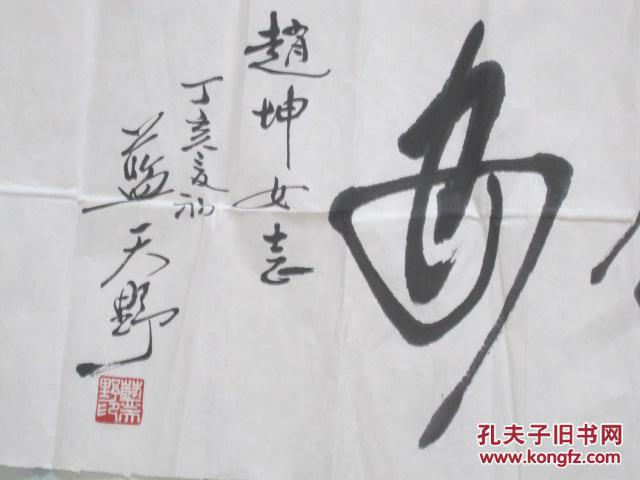 趙坤女士
丁亥夏初
藍天野
藍天野印
孔夫子旧书网
www.kongfz.com